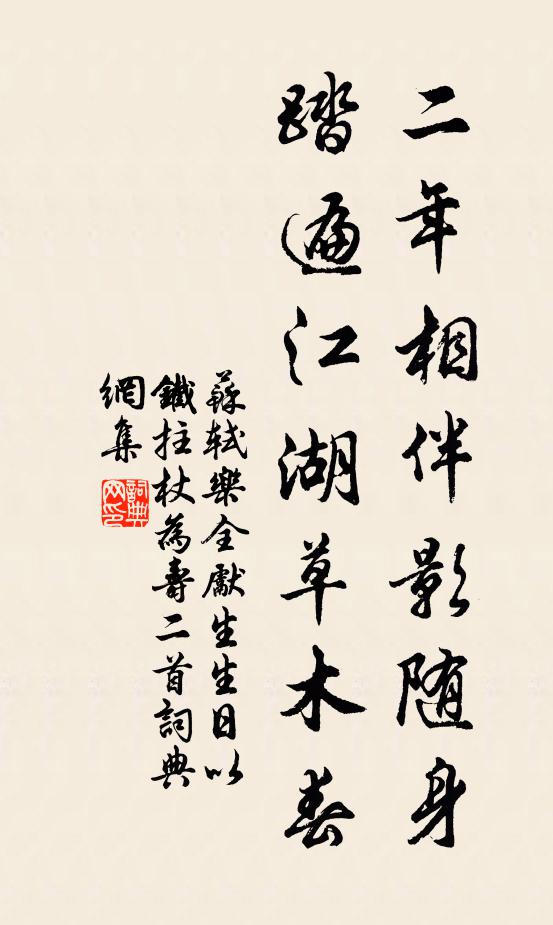 二年相伴影随身
踏遍江湖草木春
蘇軾樂全獻生生日以
鐵拄杖為壽二首詞典
網集
詞典
网印